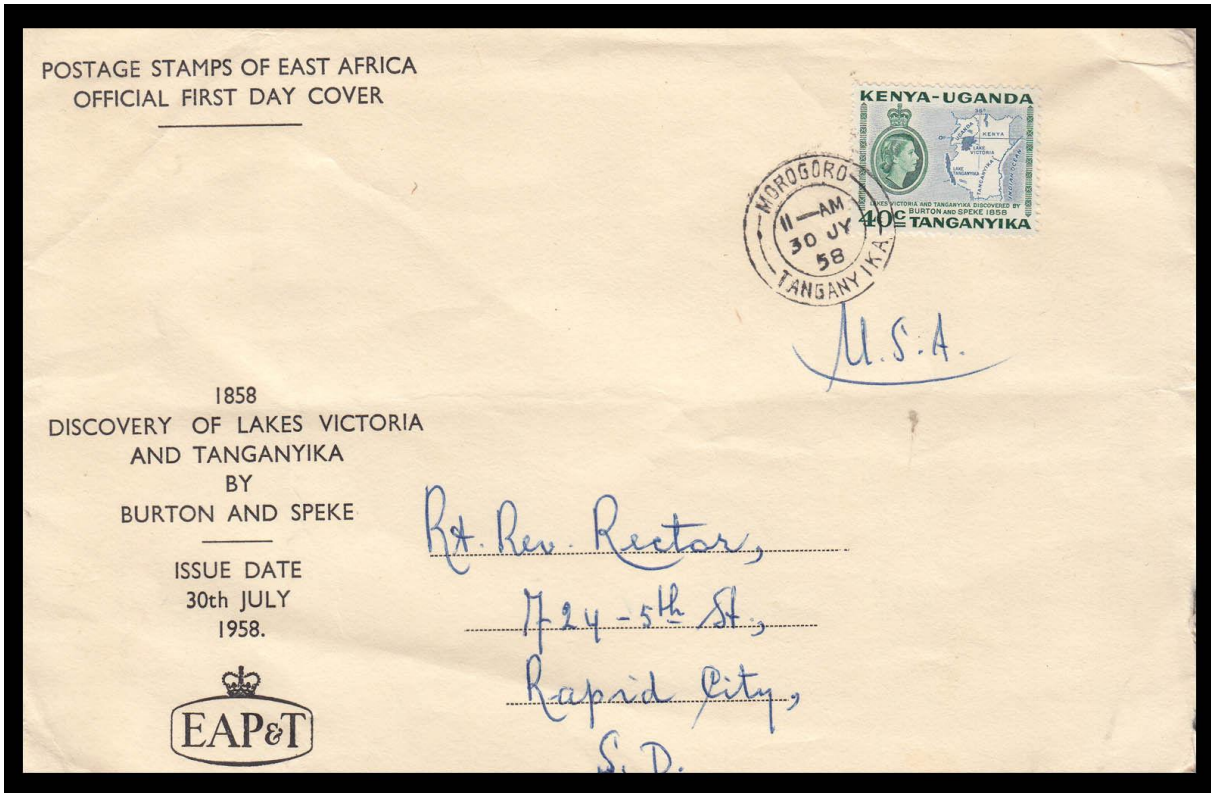 POSTAGE STAMPS OF EAST AFRICA
OFFICIAL FIRST DAY COVER
KENYA-UGANDA
UGANDA
KENYA
LAKE
VICTORIA
LAKE
TANGANYIKA
TANGANYIKA
INDIAN OCEAN
LAKES VICTORIA AND TANGANYIKA DISCOVERED BY
BURTON AND SPEKE 1858
40c TANGANYIKA
MOROGORO
11—AM
30 JY
58
TANGANYIKA
U.S.A.
1858
DISCOVERY OF LAKES VICTORIA
AND TANGANYIKA
BY
BURTON AND SPEKE
ISSUE DATE
30th JULY
1958.
EAP&T
Rt. Rev. Rector,
724-5th St.,
Rapid City,
S. D.